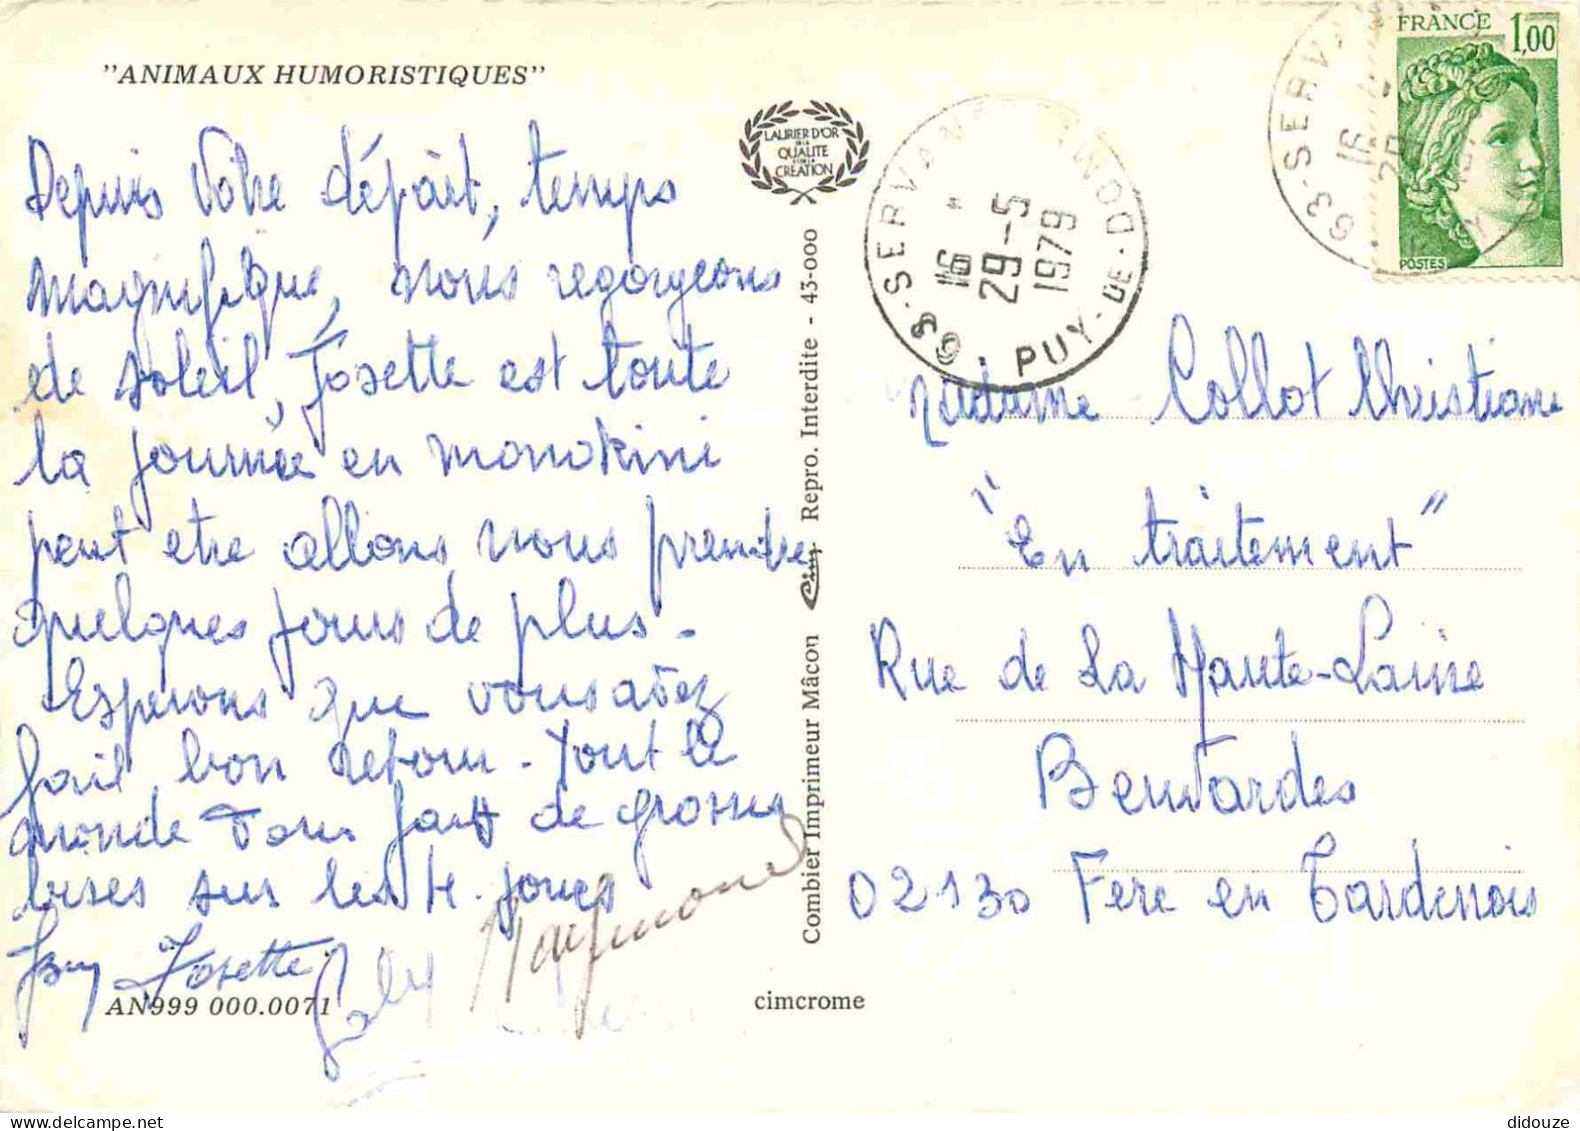 "ANIMAUX HUMORISTIQUES"
Depuis votre départ, temps
magnifique, nous regorgeons
de soleil, Josette est toute
la journée en monokini
peut etre allons nous prendre
quelques jours de plus.
Esperons que vous avez
fait bon retour. Tout le
monde vous fait de grosses
bises sur les 4 joues
Josette
Raymonde
AN999 000.0071
LAURIER D'OR
DE LA
QUALITE
ET DE LA
CREATION
Combier Imprimeur Mâcon Cim Repro. Interdite - 43-000
cimcrome
63-SERVANT
16
29-5
1979
PUY-DE-DOME
FRANCE 1,00
POSTES
63-SERVA
16
Madame Collot Christiane
"En traitement"
Rue de La Haute-Laine
02130 Fere en Tardenois
didouze